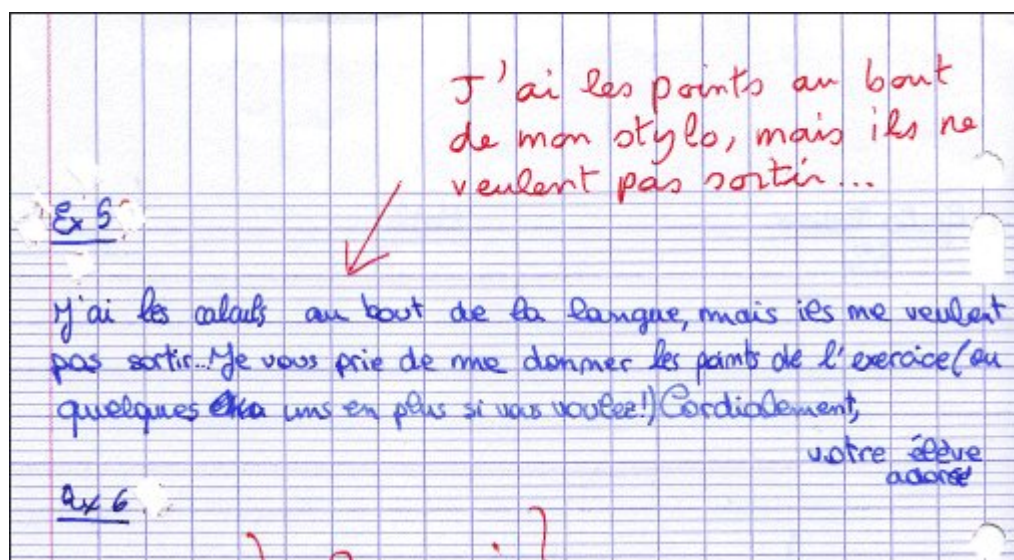 J'ai les points au bout
de mon stylo, mais ils ne
veulent pas sortir...
Ex 5
J'ai les calculs au bout de la langue, mais ils ne veulent
pas sortir... Je vous prie de me donner les points de l'exercice (ou
quelques uns en plus si vous voulez!) Cordialement,
votre élève
adorée
Ex 6